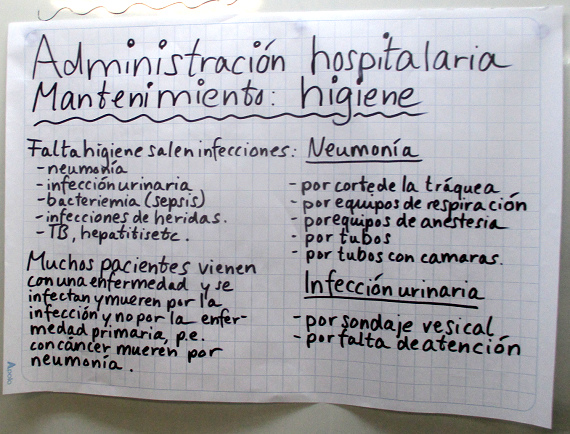 Administración hospitalaria
Mantenimiento: higiene
Falta higiene salen infecciones:
- neumonía
- infección urinaria
- bacteriemia (sepsis)
- infecciones de heridas.
- TB, hepatitis etc.
Muchos pacientes vienen
con una enfermedad y se
infectan y mueren por la
infección y no por la enfer-
medad primaria, p.e.
con cáncer mueren por
neumonía.
Neumonía
- por corte de la tráquea
- por equipos de respiración
- por equipos de anestesia
- por tubos
- por tubos con camaras.
Infección urinaria
- por sondaje vesical
- por falta de atención